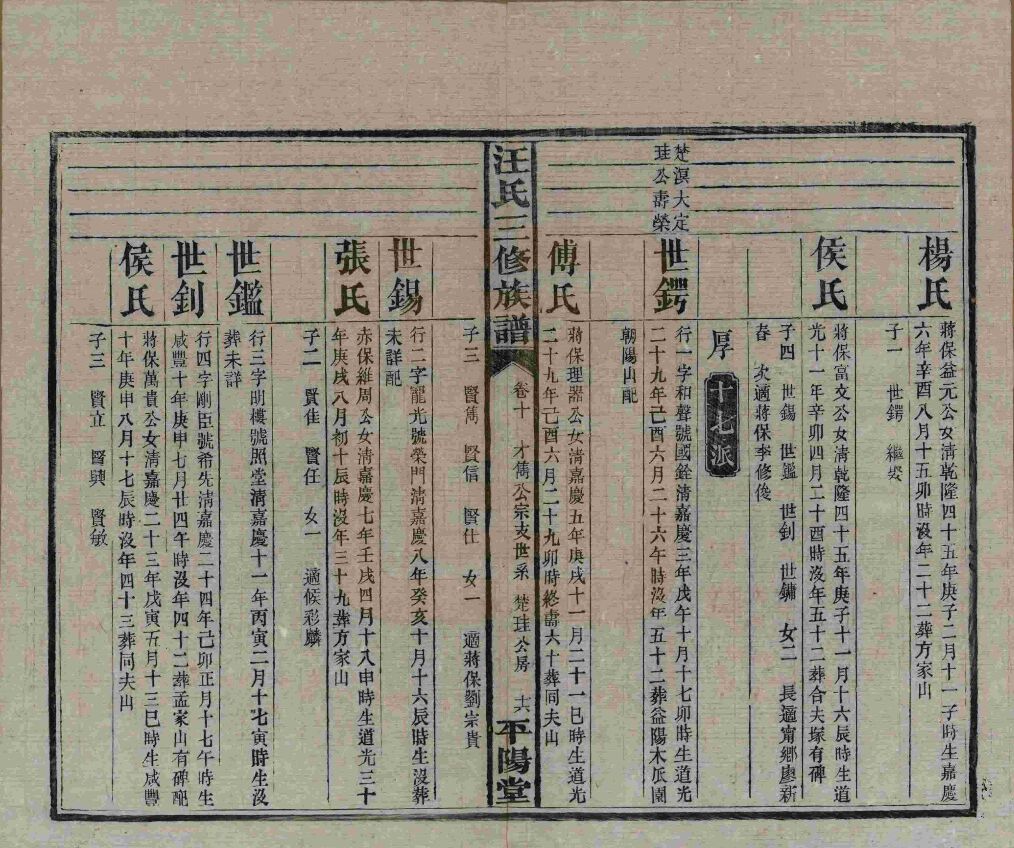 楊氏
蔣保益元公女清乾隆四十五年庚子二月十一子時生嘉慶
六年辛酉八月十五卯時沒年二十二葬方家山
子一 世鍔 繼
侯氏
蔣保富文公女清乾隆四十五年庚子十一月十六辰時生道
光十一年辛卯四月二十酉時沒年五十二葬合夫塚有碑
子四 世錫 世鑑 世釗 世鏞 女二 長適甯鄉廖新
春 次適蔣保李修俊
厚 十七派
楚溟大定
珪公壽榮
世鍔
行一字和聲號國銓清嘉慶三年戊午十月十七卯時生道光
二十九年己酉六月二十六午時沒年五十二葬益陽木瓜園
朝陽山配
傅氏
蔣保理器公女清嘉慶五年庚戌十一月二十一巳時生道光
二十九年己酉六月二十九卯時終壽六十葬同夫山
汪氏三修族譜 卷十 才雋公宗支世系 楚珪公房 十六 平陽堂
子三 賢雋 賢信 賢仕 女一 適蔣保劉宗貴
世錫
行二字寵光號榮門清嘉慶八年癸亥十月十六辰時生沒葬
未詳配
張氏
赤保維周公女清嘉慶七年壬戌四月十八申時生道光三十
年庚戌八月初十辰時沒年三十九葬方家山
子二 賢隹 賢任 女一 適候彩麟
世鑑
行三字明樓號照堂清嘉慶十一年丙寅二月十七寅時生沒
葬未詳
世釗
行四字剛臣號希先清嘉慶二十四年己卯正月十七午時生
咸豐十年庚申七月廿四午時沒年四十二葬孟家山有碑配
侯氏
蔣保萬貴公女清嘉慶二十三年戊寅五月十三巳時生咸豐
十年庚申八月十七辰時沒年四十三葬同夫山
子三 賢立 賢興 賢敏